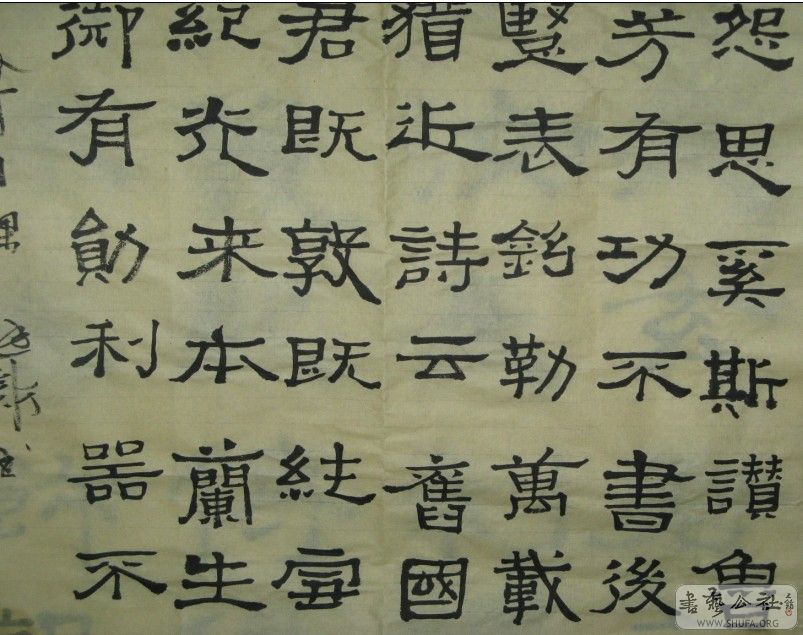 怨思奚斯讚魯
芳有功不書後
豎表銘勒萬載
猶近詩云舊國
君既敦既純雪
紀光来本蘭生
御有勛利器不
書藝公社
WWW.SHUFA.ORG